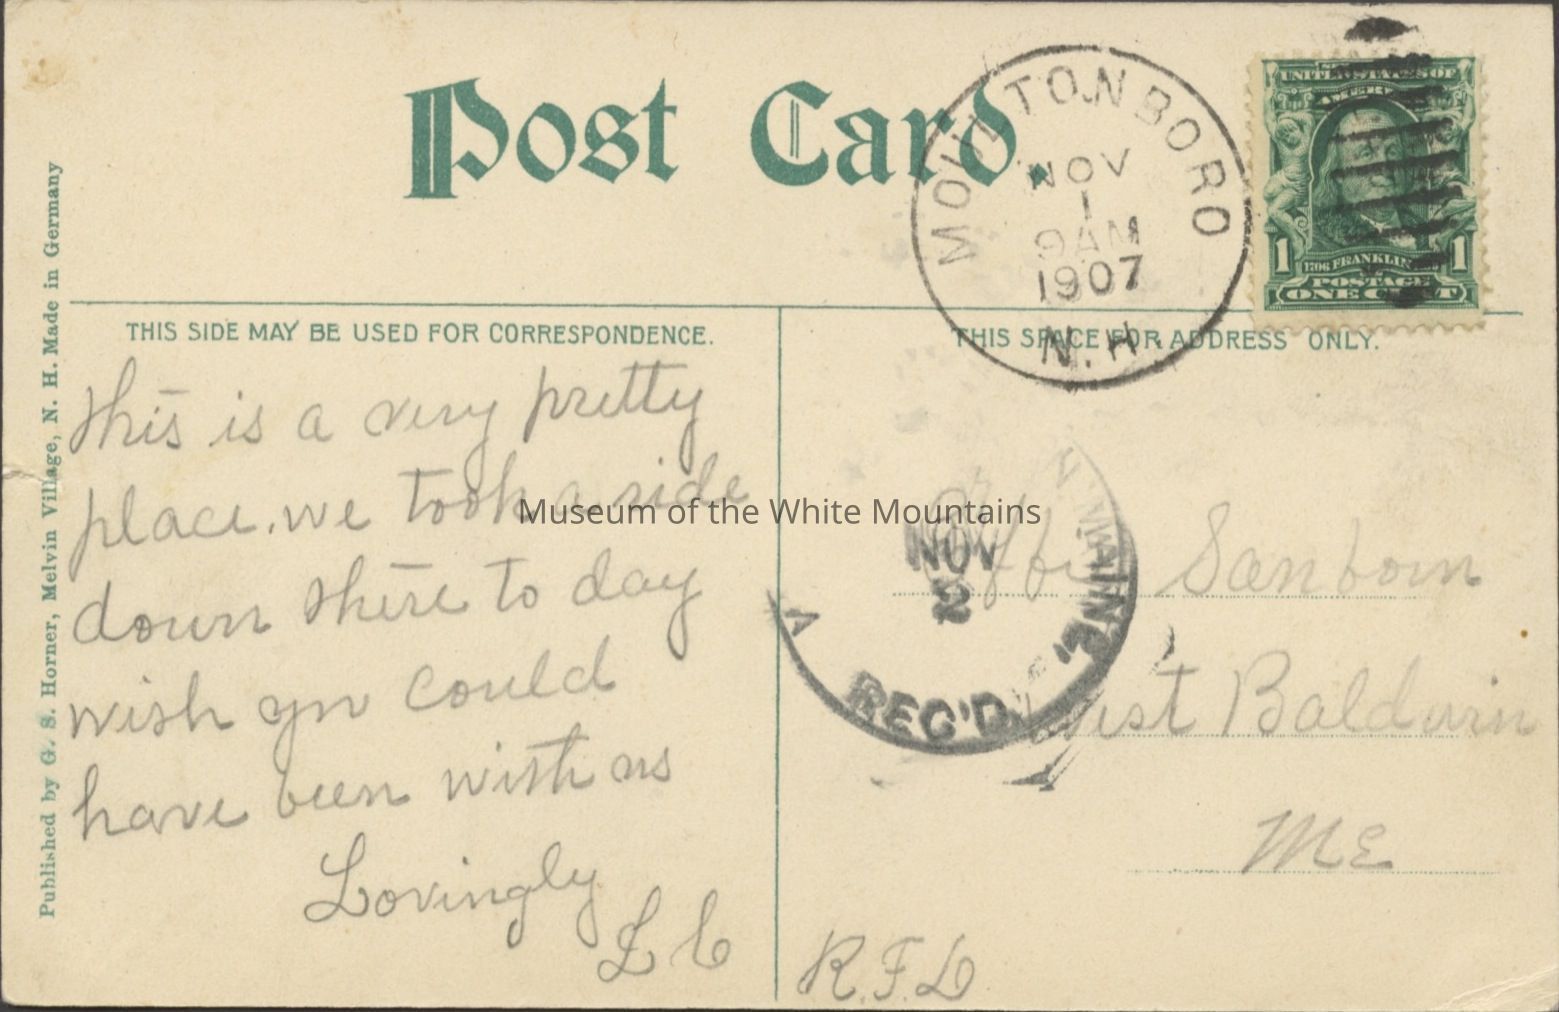 Post Card.
MOULTONBORO
NOV
1
9AM
1907
N.H.
UNITED STATES OF
AMERICA
1 1706 FRANKLIN 1
POSTAGE
ONE CENT
Published by G. S. Horner, Melvin Village, N. H. Made in Germany
THIS SIDE MAY BE USED FOR CORRESPONDENCE.
THIS SPACE FOR ADDRESS ONLY.
This is a very pretty
place. we took a ride
down there to day
wish you could
have been with us
Lovingly
L C
Museum of the White Mountains
NOV
2
MAINE,
REC'D.
Sanborn
West Baldwin
ME
R.F.D